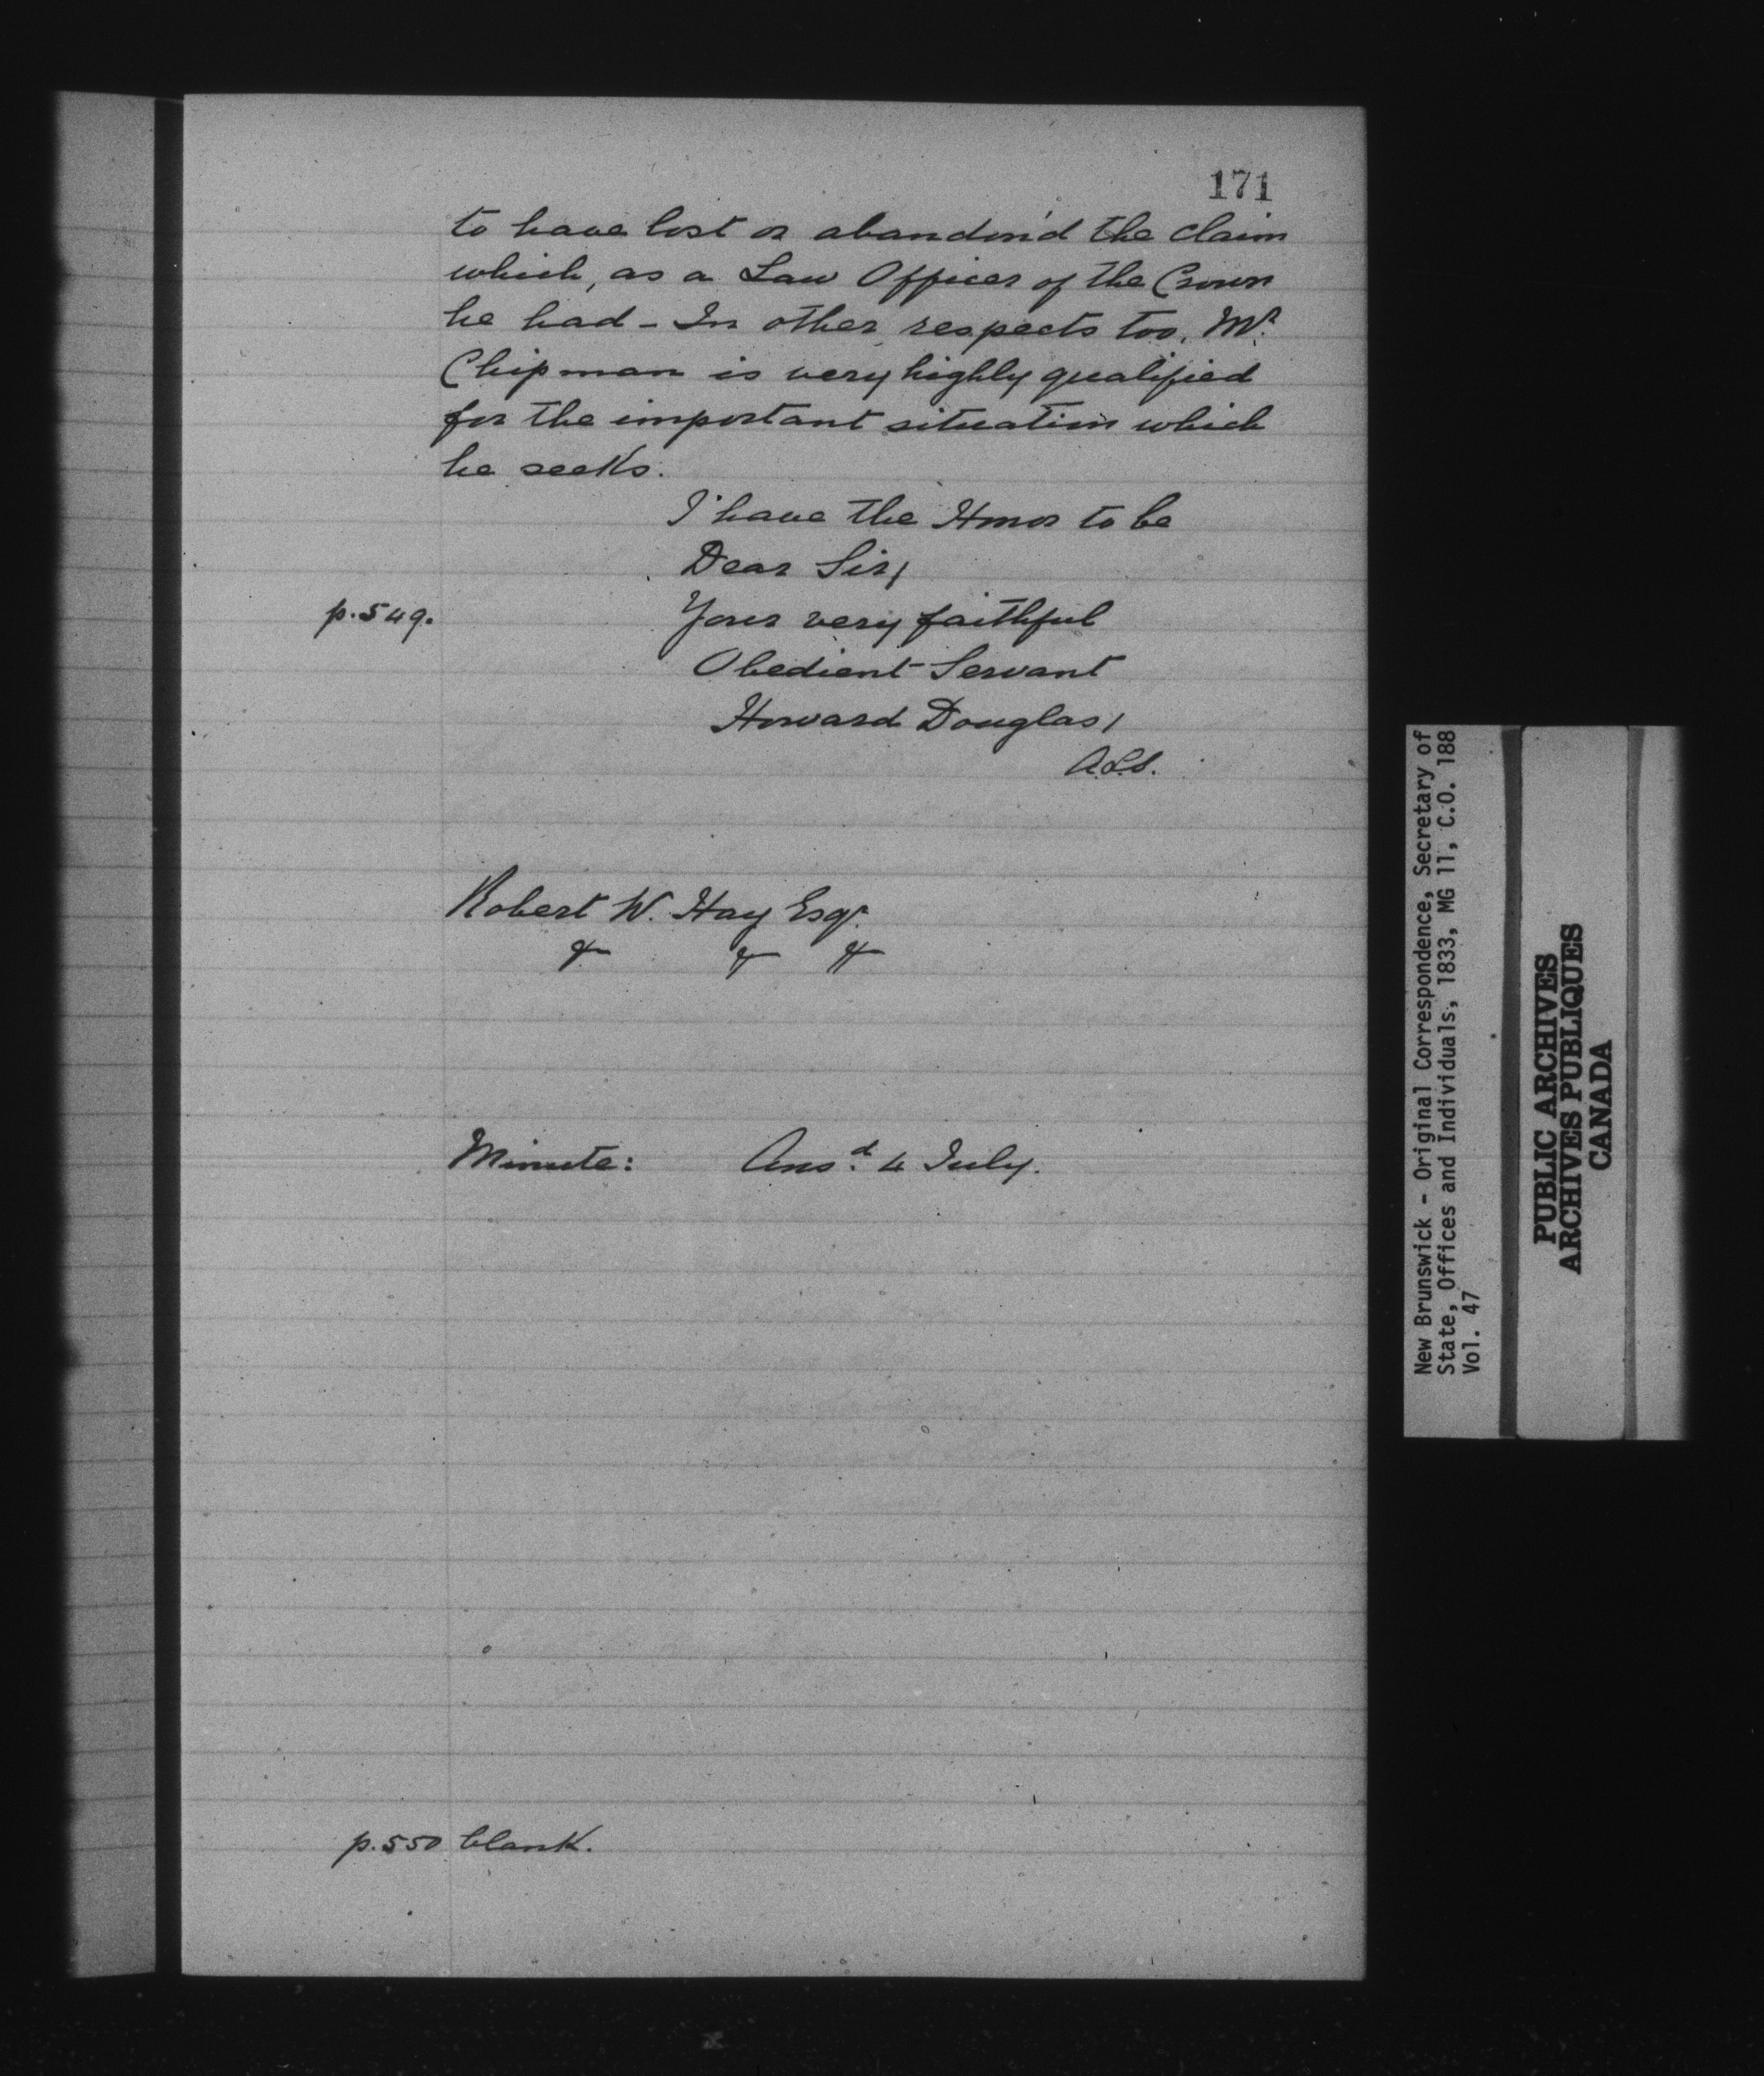 171
to have lost or abandon'd the claim
which, as a Law Officer of the Crown
he had - In other respects too, Mr.
Chipman is very highly qualified
for the important situation which
he seeks.
I have the Honor to be
Dear Sir,
p.549.
Your very faithful
Obedient Servant
Howard Douglas,
A.L.S.
Robert W. Hay Esqr.
& & &
Minute: Ansd. 4 July.
p.550 blank.
New Brunswick - Original Correspondence, Secretary of
State, Offices and Individuals, 1833, MG 11, C.O. 188
Vol. 47
PUBLIC ARCHIVES
ARCHIVES PUBLIQUES
CANADA